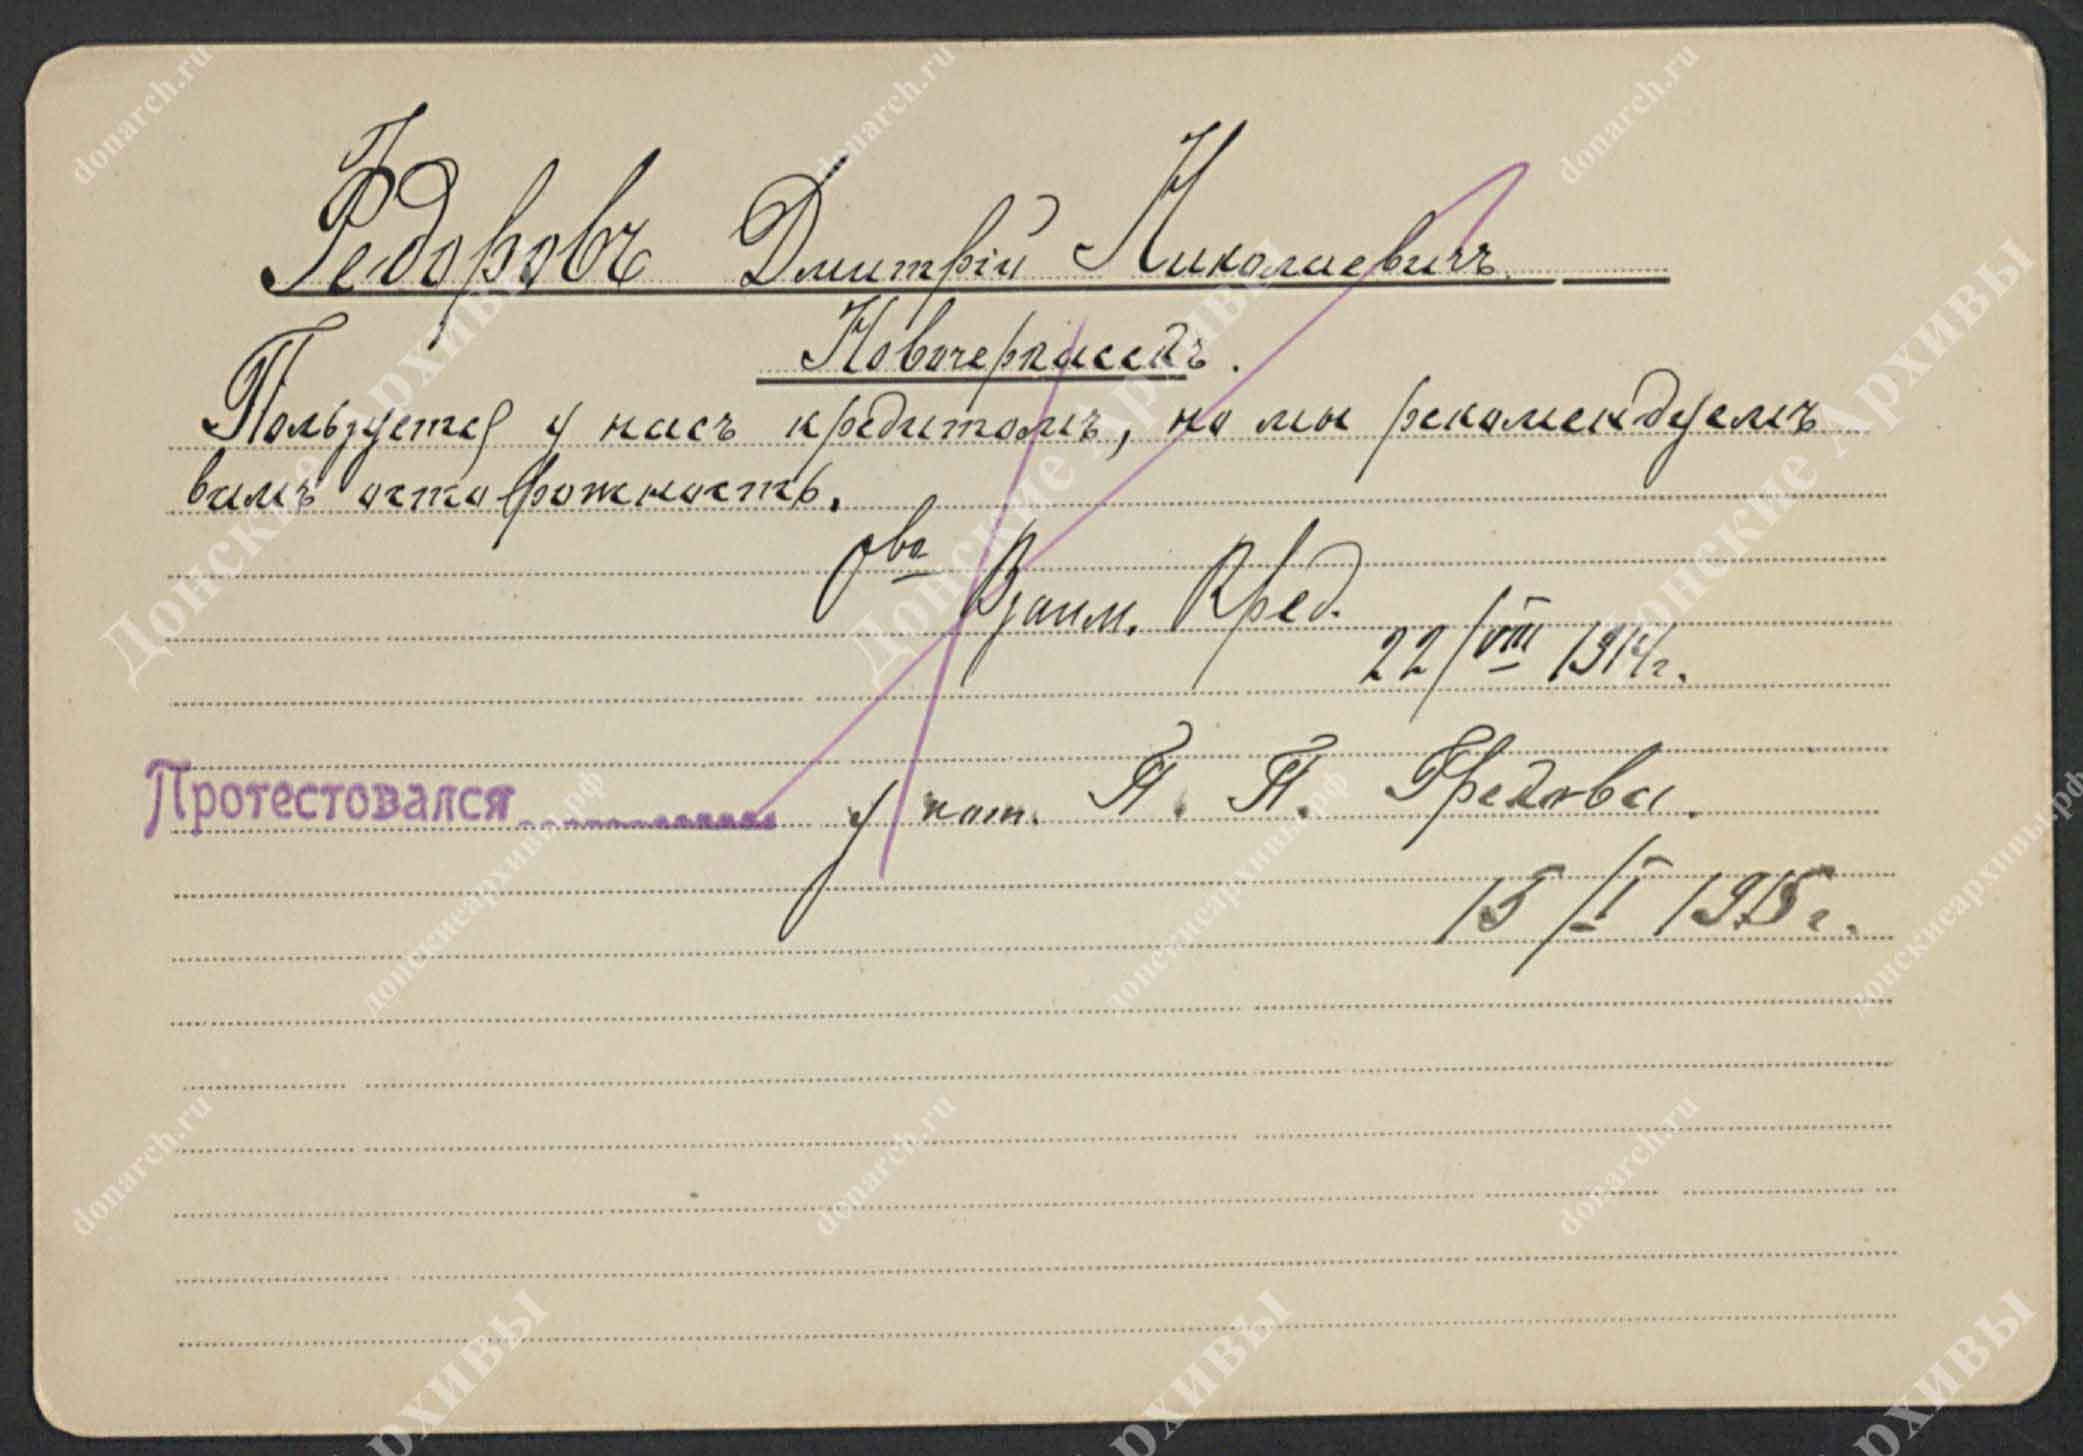 Федоровъ Дмитрій Николаевичъ
Новочеркасскъ.
Пользуется у насъ кредитомъ, но мы рекомендуемъ
вамъ осторожность.
О-ва
Взаим. Кред.
22/VIII 1914 г.
Протестовался у нот. П. П. Грекова.
15/I 1915 г.
donarch.ru
Донские Архивы
донскиеархивы.рф